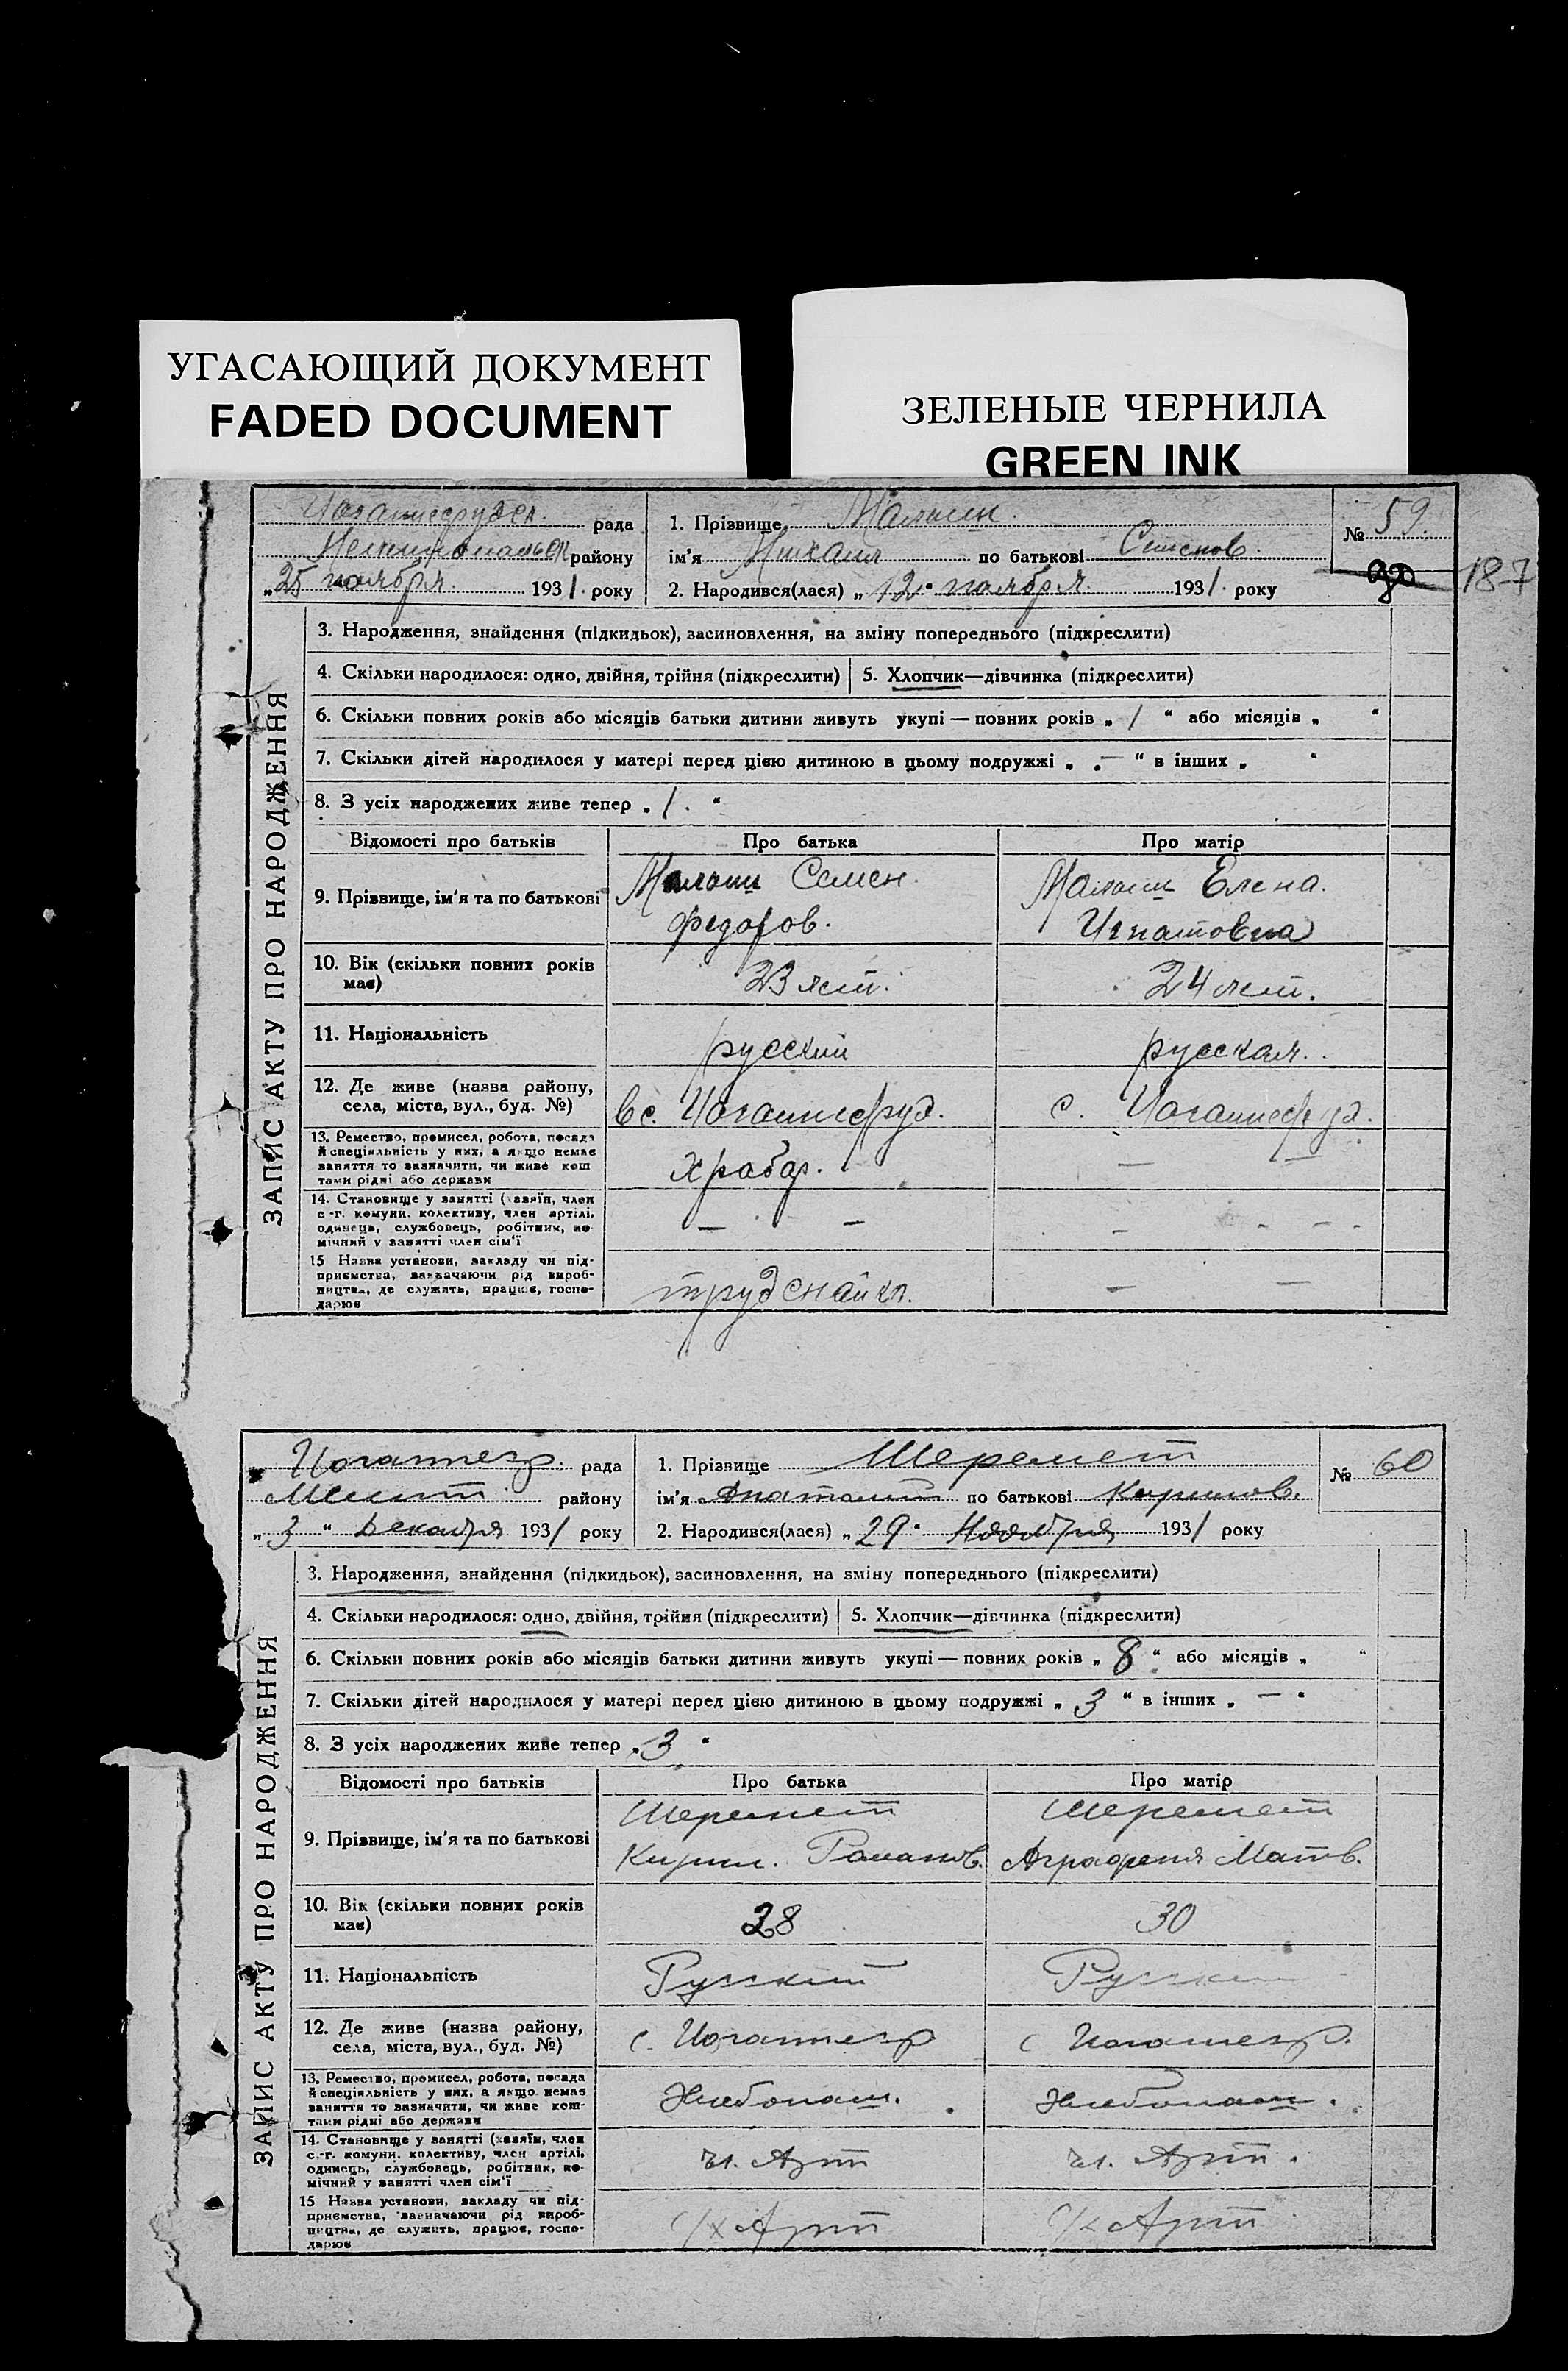 УГАСАЮЩИЙ ДОКУМЕНТ
FADED DOCUMENT
ЗЕЛЕНЫЕ ЧЕРНИЛА
GREEN INK
рада
району
„25 ноября 1931. року
1. Прізвище
ім'я Михаил по батькові Семенов.
2. Народився(лася) „12" ноября 1931. року
№ 59.
187
ЗАПИС АКТУ ПРО НАРОДЖЕННЯ
3. Народження, знайдення (підкидьок), засиновлення, на зміну попереднього (підкреслити)
4. Скільки народилося: одно, двійня, трійня (підкреслити)
5. Хлопчик—дівчинка (підкреслити)
6. Скільки повних років або місяців батьки дитини живуть укупі — повних років „ 1 “ або місяців „ “
7. Скільки дітей народилося у матері перед цією дитиною в цьому подружжі „ — “ в інших „ “
8. З усіх народжених живе тепер „ 1. “
Відомості про батьків
Про батька
Про матір
9. Прізвище, ім'я та по батькові
Семен.
Федоров.
Елена.
Игнатовна
10. Вік (скільки повних років
має)
23 лет.
24 лет.
11. Національність
русский
русская.
12. Де живе (назва району,
села, міста, вул., буд. №)
вс. Иоганнесруд.
с. Иоганнесруд.
13. Ремество, промисел, робота, посада
й спеціяльність у них, а якщо немає
заняття то зазначити, чи живе кош
тами рідні або держави
— —
14. Становище у занятті (хазяїн, член
с.-г. комуни, колективу, член артілі,
одинець, службовець, робітник, по-
мічний у занятті член сім'ї
— —
— — —
15 Назва установи, закладу чи під-
приємства, зазначаючи рід вироб-
ництва, де служить, працює, госпо-
дарює
— —
рада
району
„ 3 “ Декабря 1931 року
1. Прізвище Шеремет
ім'я Анатолий по батькові Кирилов.
2. Народився(лася) „29" Ноября 1931 року
№ 60
ЗАПИС АКТУ ПРО НАРОДЖЕННЯ
3. Народження, знайдення (підкидьок), засиновлення, на зміну попереднього (підкреслити)
4. Скільки народилося: одно, двійня, трійня (підкреслити)
5. Хлопчик—дівчинка (підкреслити)
6. Скільки повних років або місяців батьки дитини живуть укупі — повних років „ 8 “ або місяців „ “
7. Скільки дітей народилося у матері перед цією дитиною в цьому подружжі „ 3 “ в інших „ — “
8. З усіх народжених живе тепер „ 3 “
Відомості про батьків
Про батька
Про матір
9. Прізвище, ім'я та по батькові
Шеремет
Кирил. Романов.
Шеремет
Аграфена Матв.
10. Вік (скільки повних років
має)
28
30
11. Національність
Русский
Русски
12. Де живе (назва району,
села, міста, вул., буд. №)
13. Ремество, промисел, робота, посада
й спеціяльність у них, а якщо немає
заняття то зазначити, чи живе кош-
тами рідні або держави
Хлебопаш.
Хлебопаш.
14. Становище у занятті (хазяїн, член
с.-г. комуни, колективу, член артілі,
одинець, службовець, робітник, по-
мічний у занятті член сім'ї
чл. Арт
чл. Арт.
15 Назва установи, закладу чи під-
приємства, зазначаючи рід вироб-
ництва, де служить, працює, госпо-
дарює
с/х Арт
с/х Арт